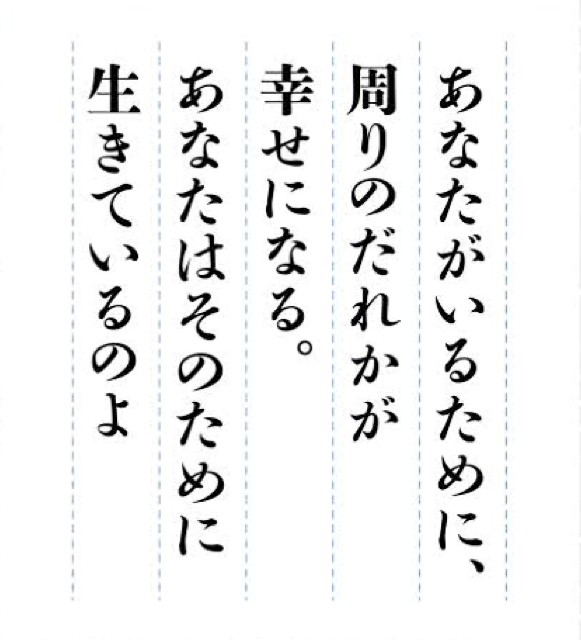 あなたがいるために、
周りのだれかが
幸せになる。
あなたはそのために
生きているのよ